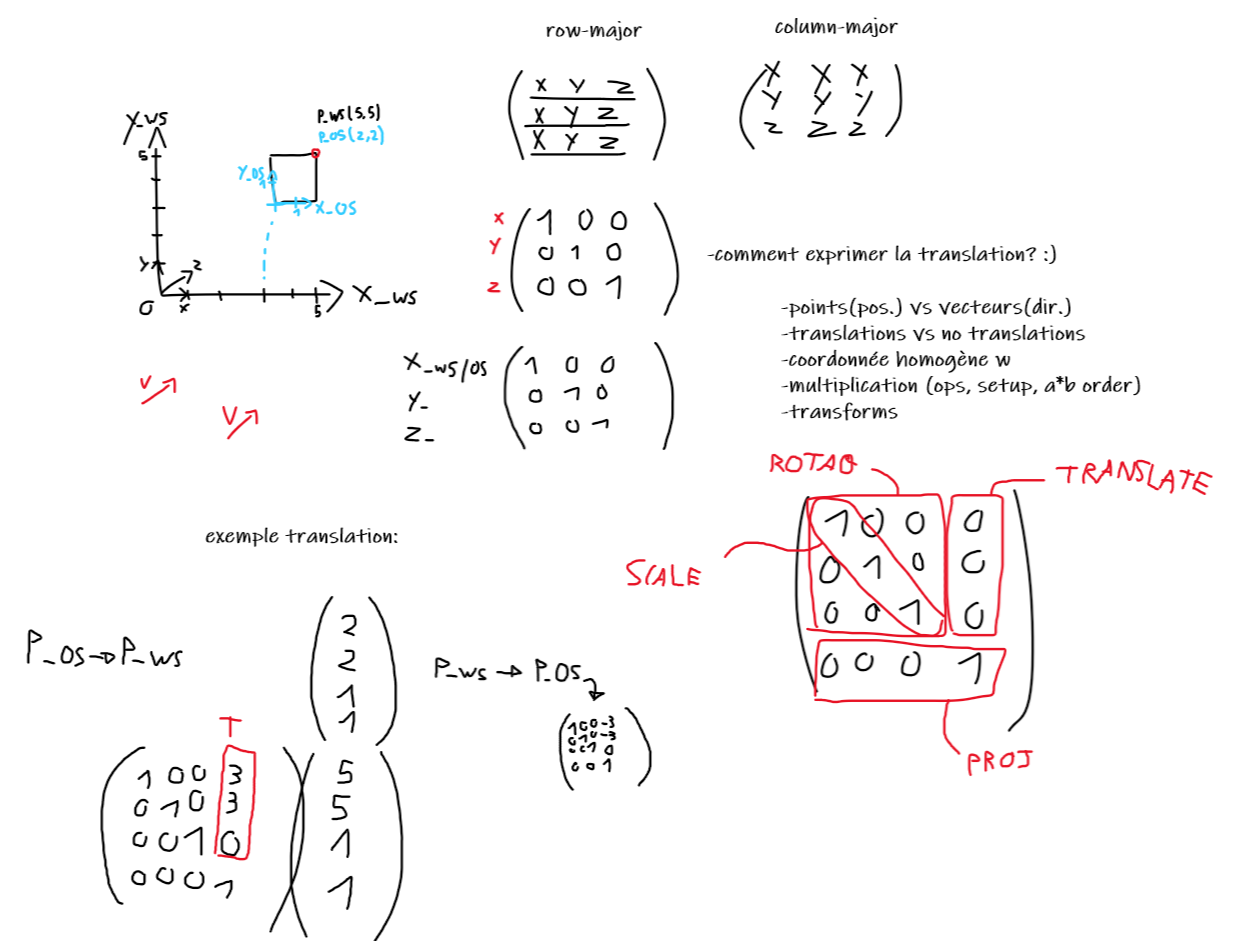 row-major
column-major
X Y Z
X Y Z
X Y Z
X X X
Y Y Y
Z Z Z
Y_WS
P_WS(5,5)
P_OS(2,2)
5
Y_OS
1
X_OS
1
Y
Z
O
X
5
X_WS
X 1 0 0
Y 0 1 0
Z 0 0 1
-comment exprimer la translation? :)
-points(pos.) vs vecteurs(dir.)
-translations vs no translations
-coordonnée homogène w
-multiplication (ops, setup, a*b order)
-transforms
X_WS/OS 1 0 0
Y_ 0 1 0
Z_ 0 0 1
V
V
ROTAO
TRANSLATE
SCALE
1 0 0 0
0 1 0 0
0 0 1 0
0 0 0 1
PROJ
exemple translation:
P_OS→P_WS
2
2
1
1
T
1 0 0 3
0 1 0 3
0 0 1 0
0 0 0 1
5
5
1
1
P_WS → P_OS
1 0 0 -3
0 1 0 -3
0 0 1 0
0 0 1